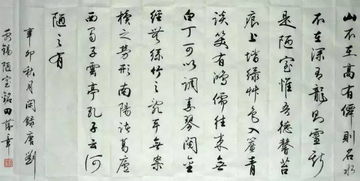 山不在高有仙則名水
不在深有龙則灵斯
是陋室惟吾德馨苔
痕上堦绿草色入簾青
谈笑有鸿儒往来无
白丁可以调素琴阅金
经无丝竹之乱耳无案
牍之劳形南阳诸葛庐
西蜀子雲亭孔子云何
陋之有
辛卯秋月闲録唐刘
禹锡陋室铭田